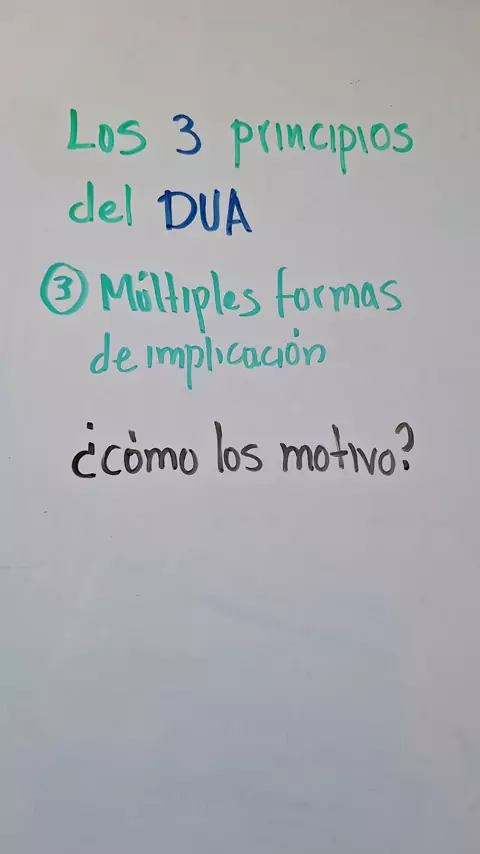 Los 3 principios
del DUA
③ Múltiples formas
de implicación
¿cómo los motivo?